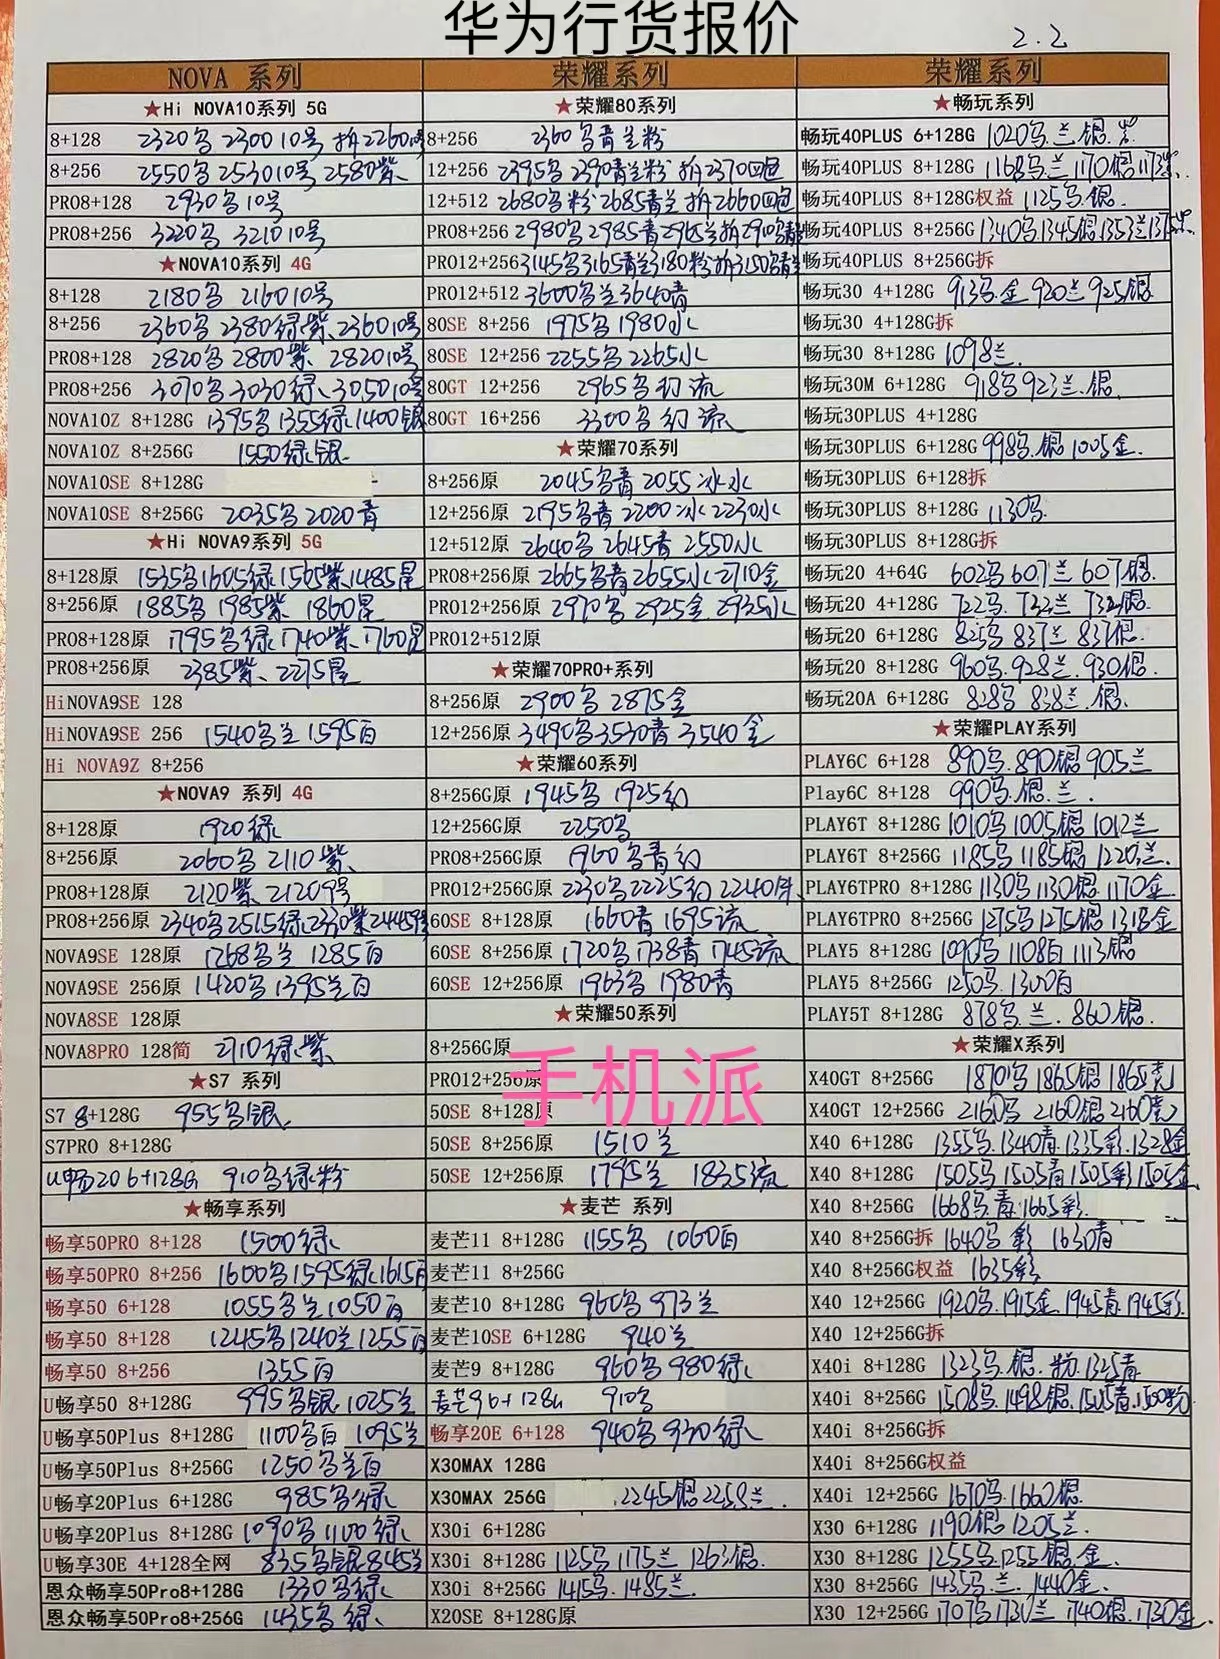 华为行货报价
2.2
NOVA 系列
★Hi NOVA10系列 5G
8+128 2320乌 2300 10号 拆2260
8+256 2550乌 2530 10号 2580紫
PRO8+128 2930乌 10号
PRO8+256 3220乌 3210 10号
★NOVA10系列 4G
8+128 2180乌 2160 10号
8+256 2360乌 2380绿紫 2360 10号
PRO8+128 2820乌 2800紫 2820 10号
PRO8+256 3070乌 3030绿 3050 10号
NOVA10Z 8+128G 1395乌 1355绿 1400银
NOVA10Z 8+256G 1550绿银
NOVA10SE 8+128G
NOVA10SE 8+256G 2035乌 2020青
★Hi NOVA9系列 5G
8+128原 1535乌 1605绿 1565紫 1485星
8+256原 1885乌 1985紫 1860星
PRO8+128原 1795乌绿 1740紫 1760星
PRO8+256原 2385紫 2275星
HiNOVA9SE 128
HiNOVA9SE 256 1540乌兰 1595白
Hi NOVA9Z 8+256
★NOVA9 系列 4G
8+128原 1920绿
8+256原 2060乌 2110紫
PRO8+128原 2120紫 2120 9号
PRO8+256原 2340乌 2515绿 2330紫 2445 9号
NOVA9SE 128原 1268乌兰 1285白
NOVA9SE 256原 1420乌 1395兰白
NOVA8SE 128原
NOVA8PRO 128简 2710绿紫
★S7 系列
S7 8+128G 955乌银
S7PRO 8+128G
U畅20 6+128G 910乌绿粉
★畅享系列
畅享50PRO 8+128 1500绿
畅享50PRO 8+256 1600乌 1595绿 1615白
畅享50 6+128 1055乌兰 1050白
畅享50 8+128 1245乌 1240兰 1255白
畅享50 8+256 1355白
U畅享50 8+128G 995乌银 1025兰
U畅享50Plus 8+128G 1100乌白 1095兰
U畅享50Plus 8+256G 1250乌兰白
U畅享20Plus 6+128G 985乌绿
U畅享20Plus 8+128G 1090乌 1100绿
U畅享30E 4+128全网 835乌银 845兰
恩众畅享50Pro8+128G 1330乌绿
恩众畅享50Pro8+256G 1435乌绿
荣耀系列
★荣耀80系列
8+256 2360乌青兰粉
12+256 2395乌 2390青兰粉 拆2370四色
12+512 2680乌粉 2685青兰 拆2660四色
PRO8+256 2980乌 2985青 2965兰 拆2910乌青
PRO12+256 3145乌 3165青兰 3180粉 拆3150乌青兰
PRO12+512 3600乌兰 3640青
80SE 8+256 1975乌 1980水
80SE 12+256 2255乌 2265水
80GT 12+256 2965乌幻流
80GT 16+256 3300乌幻流
★荣耀70系列
8+256原 2045乌青 2055冰水
12+256原 2195乌青 2200冰 2230水
12+512原 2640乌 2645青 2550水
PRO8+256原 2665乌青 2655水 2710金
PRO12+256原 2970乌 2925金 2935水
PRO12+512原
★荣耀70PRO+系列
8+256原 2900乌 2875金
12+256原 3490乌 3530青 3540金
★荣耀60系列
8+256G原 1945乌 1925幻
12+256G原 2250乌
PRO8+256G原 1960乌青幻
PRO12+256G原 2230乌 2225幻 2240
60SE 8+128原 1660青 1695流
60SE 8+256原 1720乌 1738青 1745流
60SE 12+256原 1963乌 1980青
★荣耀50系列
8+256G原
PRO12+256原
手机派
50SE 8+128原
50SE 8+256原 1510兰
50SE 12+256原 1795兰 1835流
★麦芒 系列
麦芒11 8+128G 1155乌 1060白
麦芒11 8+256G
麦芒10 8+128G 960乌 973兰
麦芒10SE 6+128G 940兰
麦芒9 8+128G 960乌 980绿
麦芒9 6+128G 910乌
畅享20E 6+128 940乌 930绿
X30MAX 128G
X30MAX 256G 2245银 2258兰
X30i 6+128G
X30i 8+128G 1125乌 1175兰 1263银
X30i 8+256G 1415乌 1485兰
X20SE 8+128G原
荣耀系列
★畅玩系列
畅玩40PLUS 6+128G 1020乌.兰.银.紫
畅玩40PLUS 8+128G 1168乌兰 1170银 1173紫
畅玩40PLUS 8+128G权益 1125乌.银.
畅玩40PLUS 8+256G 1340乌 1345银 1353兰 1375紫
畅玩40PLUS 8+256G拆
畅玩30 4+128G 913乌.金 920兰 925银
畅玩30 4+128G拆
畅玩30 8+128G 1098兰
畅玩30M 6+128G 918乌 923兰.银
畅玩30PLUS 4+128G
畅玩30PLUS 6+128G 998乌.银 1005金.
畅玩30PLUS 6+128拆
畅玩30PLUS 8+128G 1130乌
畅玩30PLUS 8+128G拆
畅玩20 4+64G 602乌 607兰 607银.
畅玩20 4+128G 722乌 732兰 732银.
畅玩20 6+128G 825乌 837兰 837银.
畅玩20 8+128G 960乌.928兰.930银.
畅玩20A 6+128G 828乌 838兰.银.
★荣耀PLAY系列
PLAY6C 6+128 890乌.890银 905兰
Play6C 8+128 990乌.银.兰.
PLAY6T 8+128G 1010乌 1005银 1012兰
PLAY6T 8+256G 1185乌 1185银 1220兰.
PLAY6TPRO 8+128G 1130乌 1130银 1170金
PLAY6TPRO 8+256G 1275乌 1275银 1318金
PLAY5 8+128G 1090乌 1108白 1113银
PLAY5 8+256G 1250乌.1300白
PLAY5T 8+128G 878乌.兰.860银.
★荣耀X系列
X40GT 8+256G 1870乌 1865银 1865亮
X40GT 12+256G 2160乌 2160银 2160亮
X40 6+128G 1355乌.1340青.1335彩.1328金
X40 8+128G 1505乌 1505青 1505彩 1505金
X40 8+256G 1668乌.青.1665彩.
X40 8+256G拆 1640乌 彩 1630青
X40 8+256G权益 1635彩
X40 12+256G 1920乌.1915金.1945青.1945彩
X40 12+256G拆
X40i 8+128G 1323乌.银.粉.1325青
X40i 8+256G 1508乌.1498银.1505青.1500粉
X40i 8+256G拆
X40i 8+256G权益
X40i 12+256G 1670乌.1660银.
X30 6+128G 1190银 1205兰.
X30 8+128G 1255乌.1255银.金.
X30 8+256G 1435乌.兰.1440金.
X30 12+256G 1707乌 1730兰 1740银.1730金.